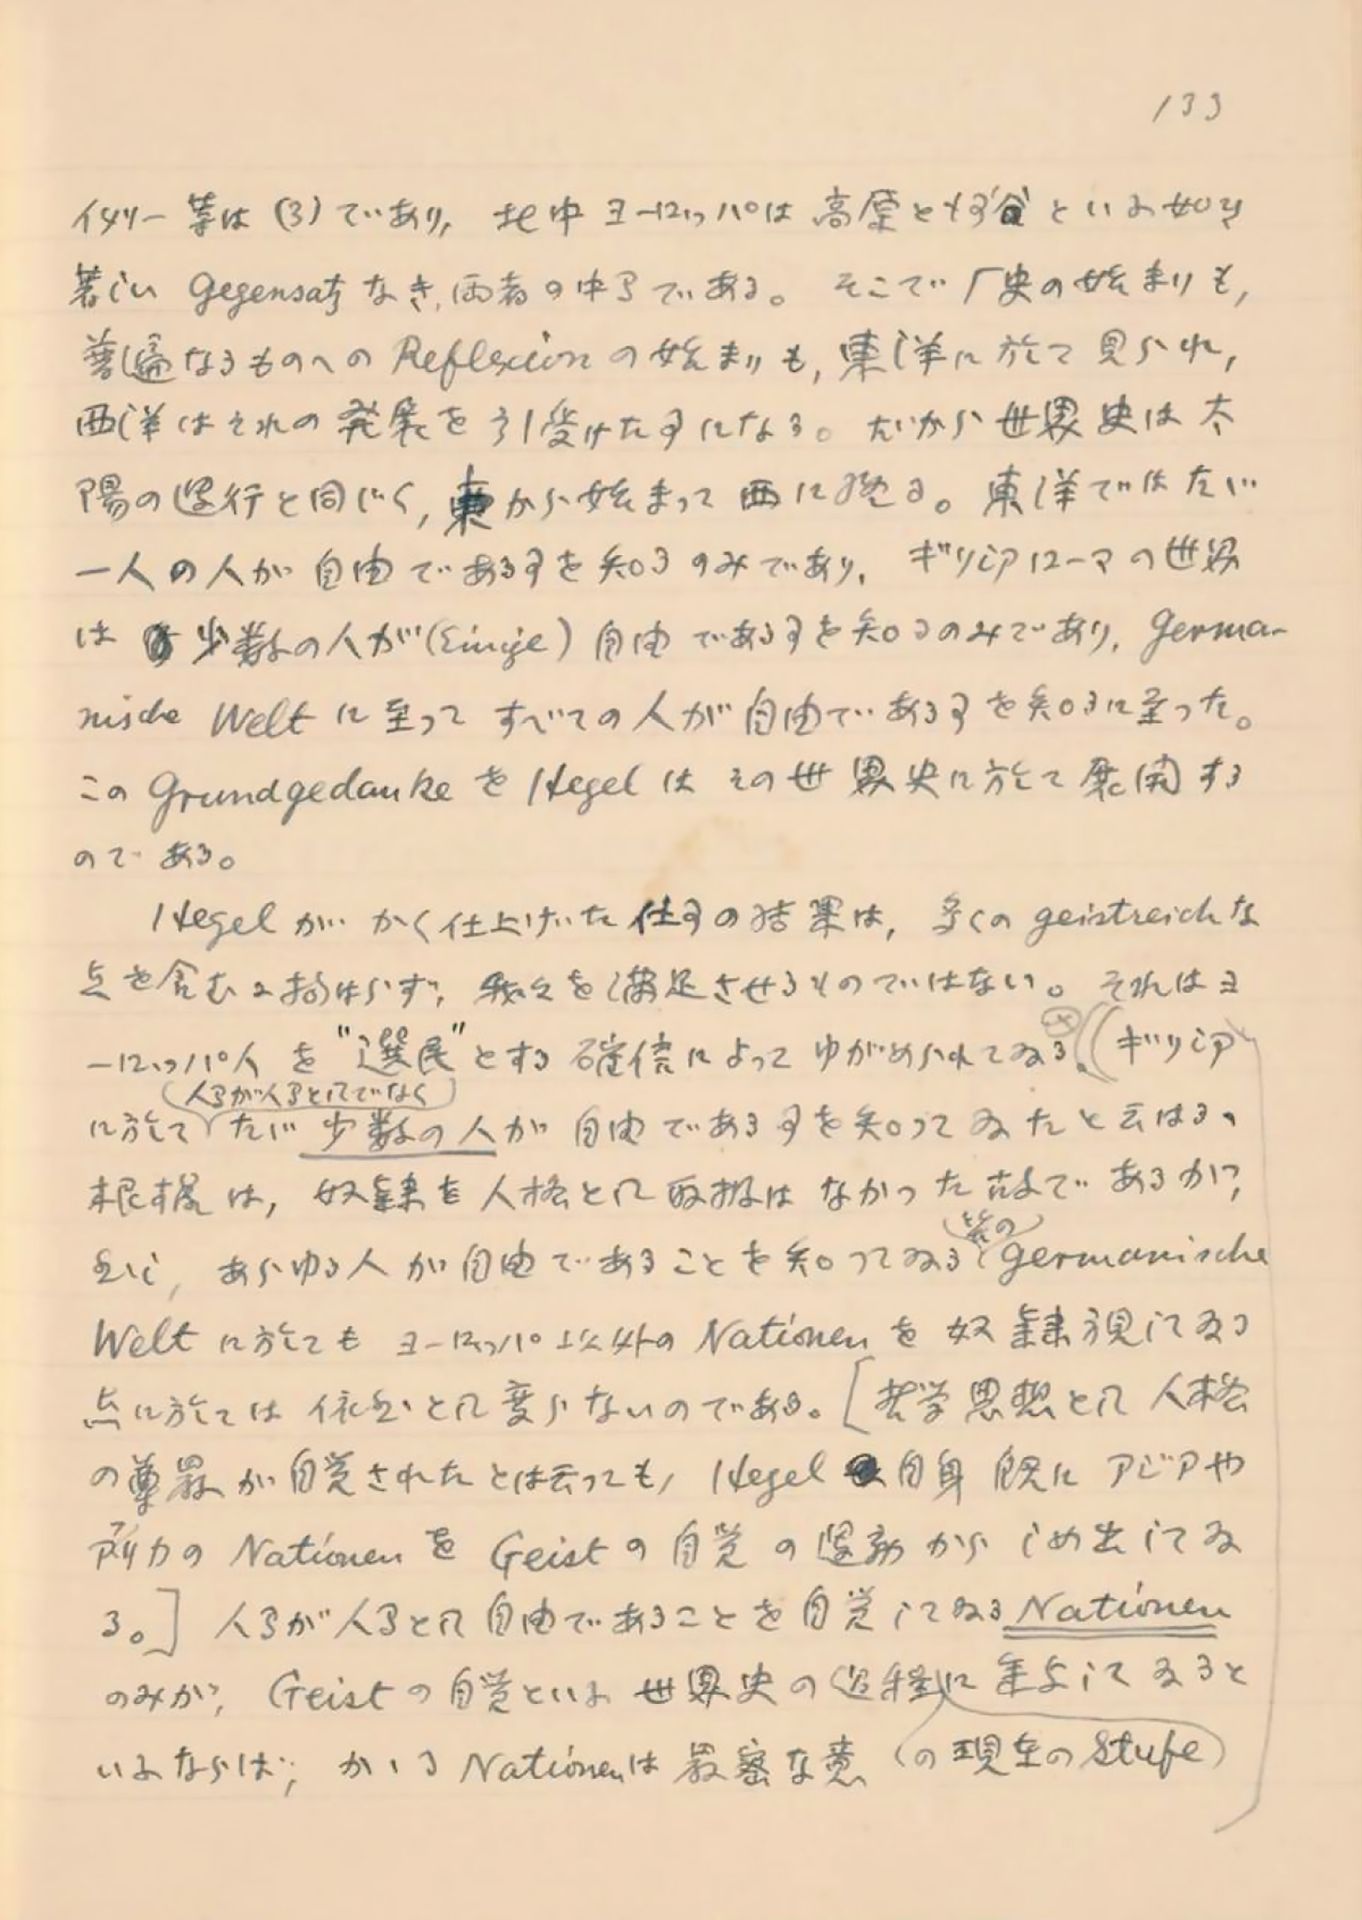 133
イタリー等は(3)であり, 北中ヨーロッパは高原と峡谷といふ如き
著しい Gegensatz なき, 両者の中間である。そこで歴史の始まりも,
普遍なるものへの Reflexion の始まりも, 東洋に於て見られ,
西洋はそれの発展を引受けた事になる。だから世界史は太
陽の運行と同じく, 東から始まって西に終る。東洋ではたゞ
一人の人が自由である事を知るのみであり, ギリシアローマの世界
は 少数の人が(Einige) 自由である事を知るのみであり, germa-
nische Welt に至ってすべての人が自由である事を知るに至った。
この Grundgedanke を Hegel はその世界史に於て展開する
のである。
Hegel がかく仕上げた仕事の結果は, 多くの geistreich な
点を含むに拘はらず, 我々を満足させるものではない。それはヨ
ーロッパ人を"選民"とする確信によってゆがめられてゐる。(ギリシア
(人間が人間としてでなく)
に於てたゞ少数の人が自由である事を知ってゐたと云はるゝ
根拠は, 奴隷を人格として取扱はなかった故であるが,
(筈の)
然し, あらゆる人が自由であることを知ってゐる germanische
Welt に於てもヨーロッパ以外の Nationen を奴隷視してゐる
点に於ては依然として変らないのである。[哲学思想として人格
の尊厳が自覚されたとは云っても, Hegel 自身既にアジアや
アフリカの Nationen を Geist の自覚の運動からしめ出してゐ
る。] 人間が人間として自由であることを自覚してゐる Nationen
のみが, Geist の自覚といふ世界史の過程に参与してゐると
いふならば, かゝる Nationen は厳密な意 (の現在の Stufe)